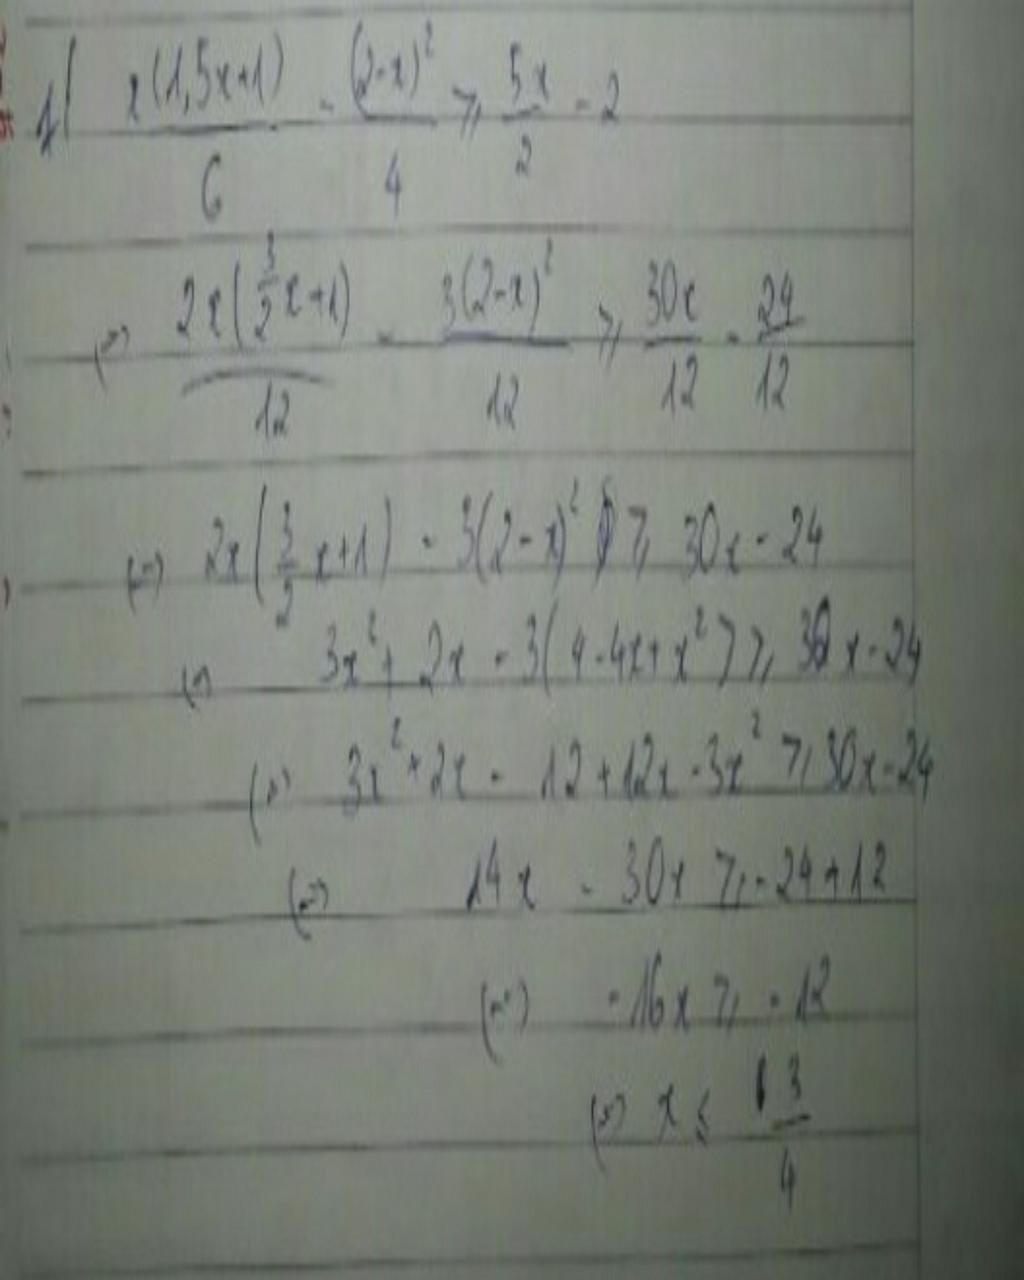 f/ x(1,5x+1)/6 - (2-x)²/4 ≥ 5x/2 - 2
(=) 2x(3/2x+1)/12 - 3(2-x)²/12 ≥ 30x/12 - 24/12
(=) 2x(3/2x+1) - 3(2-x)² ≥ 30x - 24
(=) 3x² + 2x - 3(4-4x+x²) ≥ 30x - 24
(=) 3x² + 2x - 12 + 12x - 3x² ≥ 30x - 24
(=) 14x - 30x ≥ -24 + 12
(=) -16x ≥ -12
(=) x ≤ 3/4